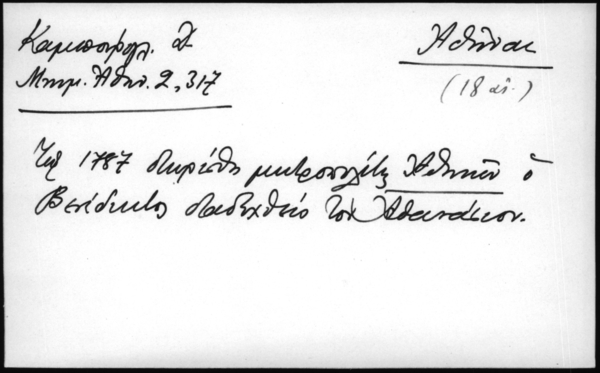 Καμπούρογλ. Δ.
Μνημ. Ἀθην. 2, 317
Ἀθῆναι
(18 αἰ.)
Τῷ 1787 διωρίσθη μητροπολίτης Ἀθηνῶν ὁ
Βενέδικτος διαδεχθεὶς τὸν Ἀθανάσιον.